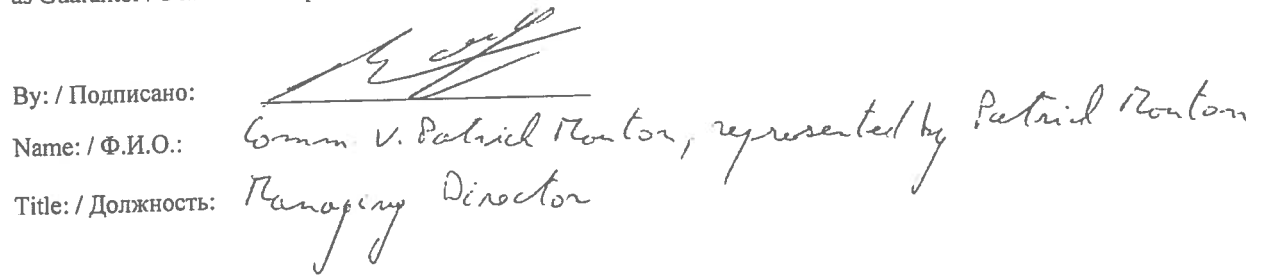 as Guarantor /
By: / Подписано:
Name: / Ф.И.О.: Comm V. Patrick Mouton, represented by Patrick Mouton
Title: / Должность: Managing Director